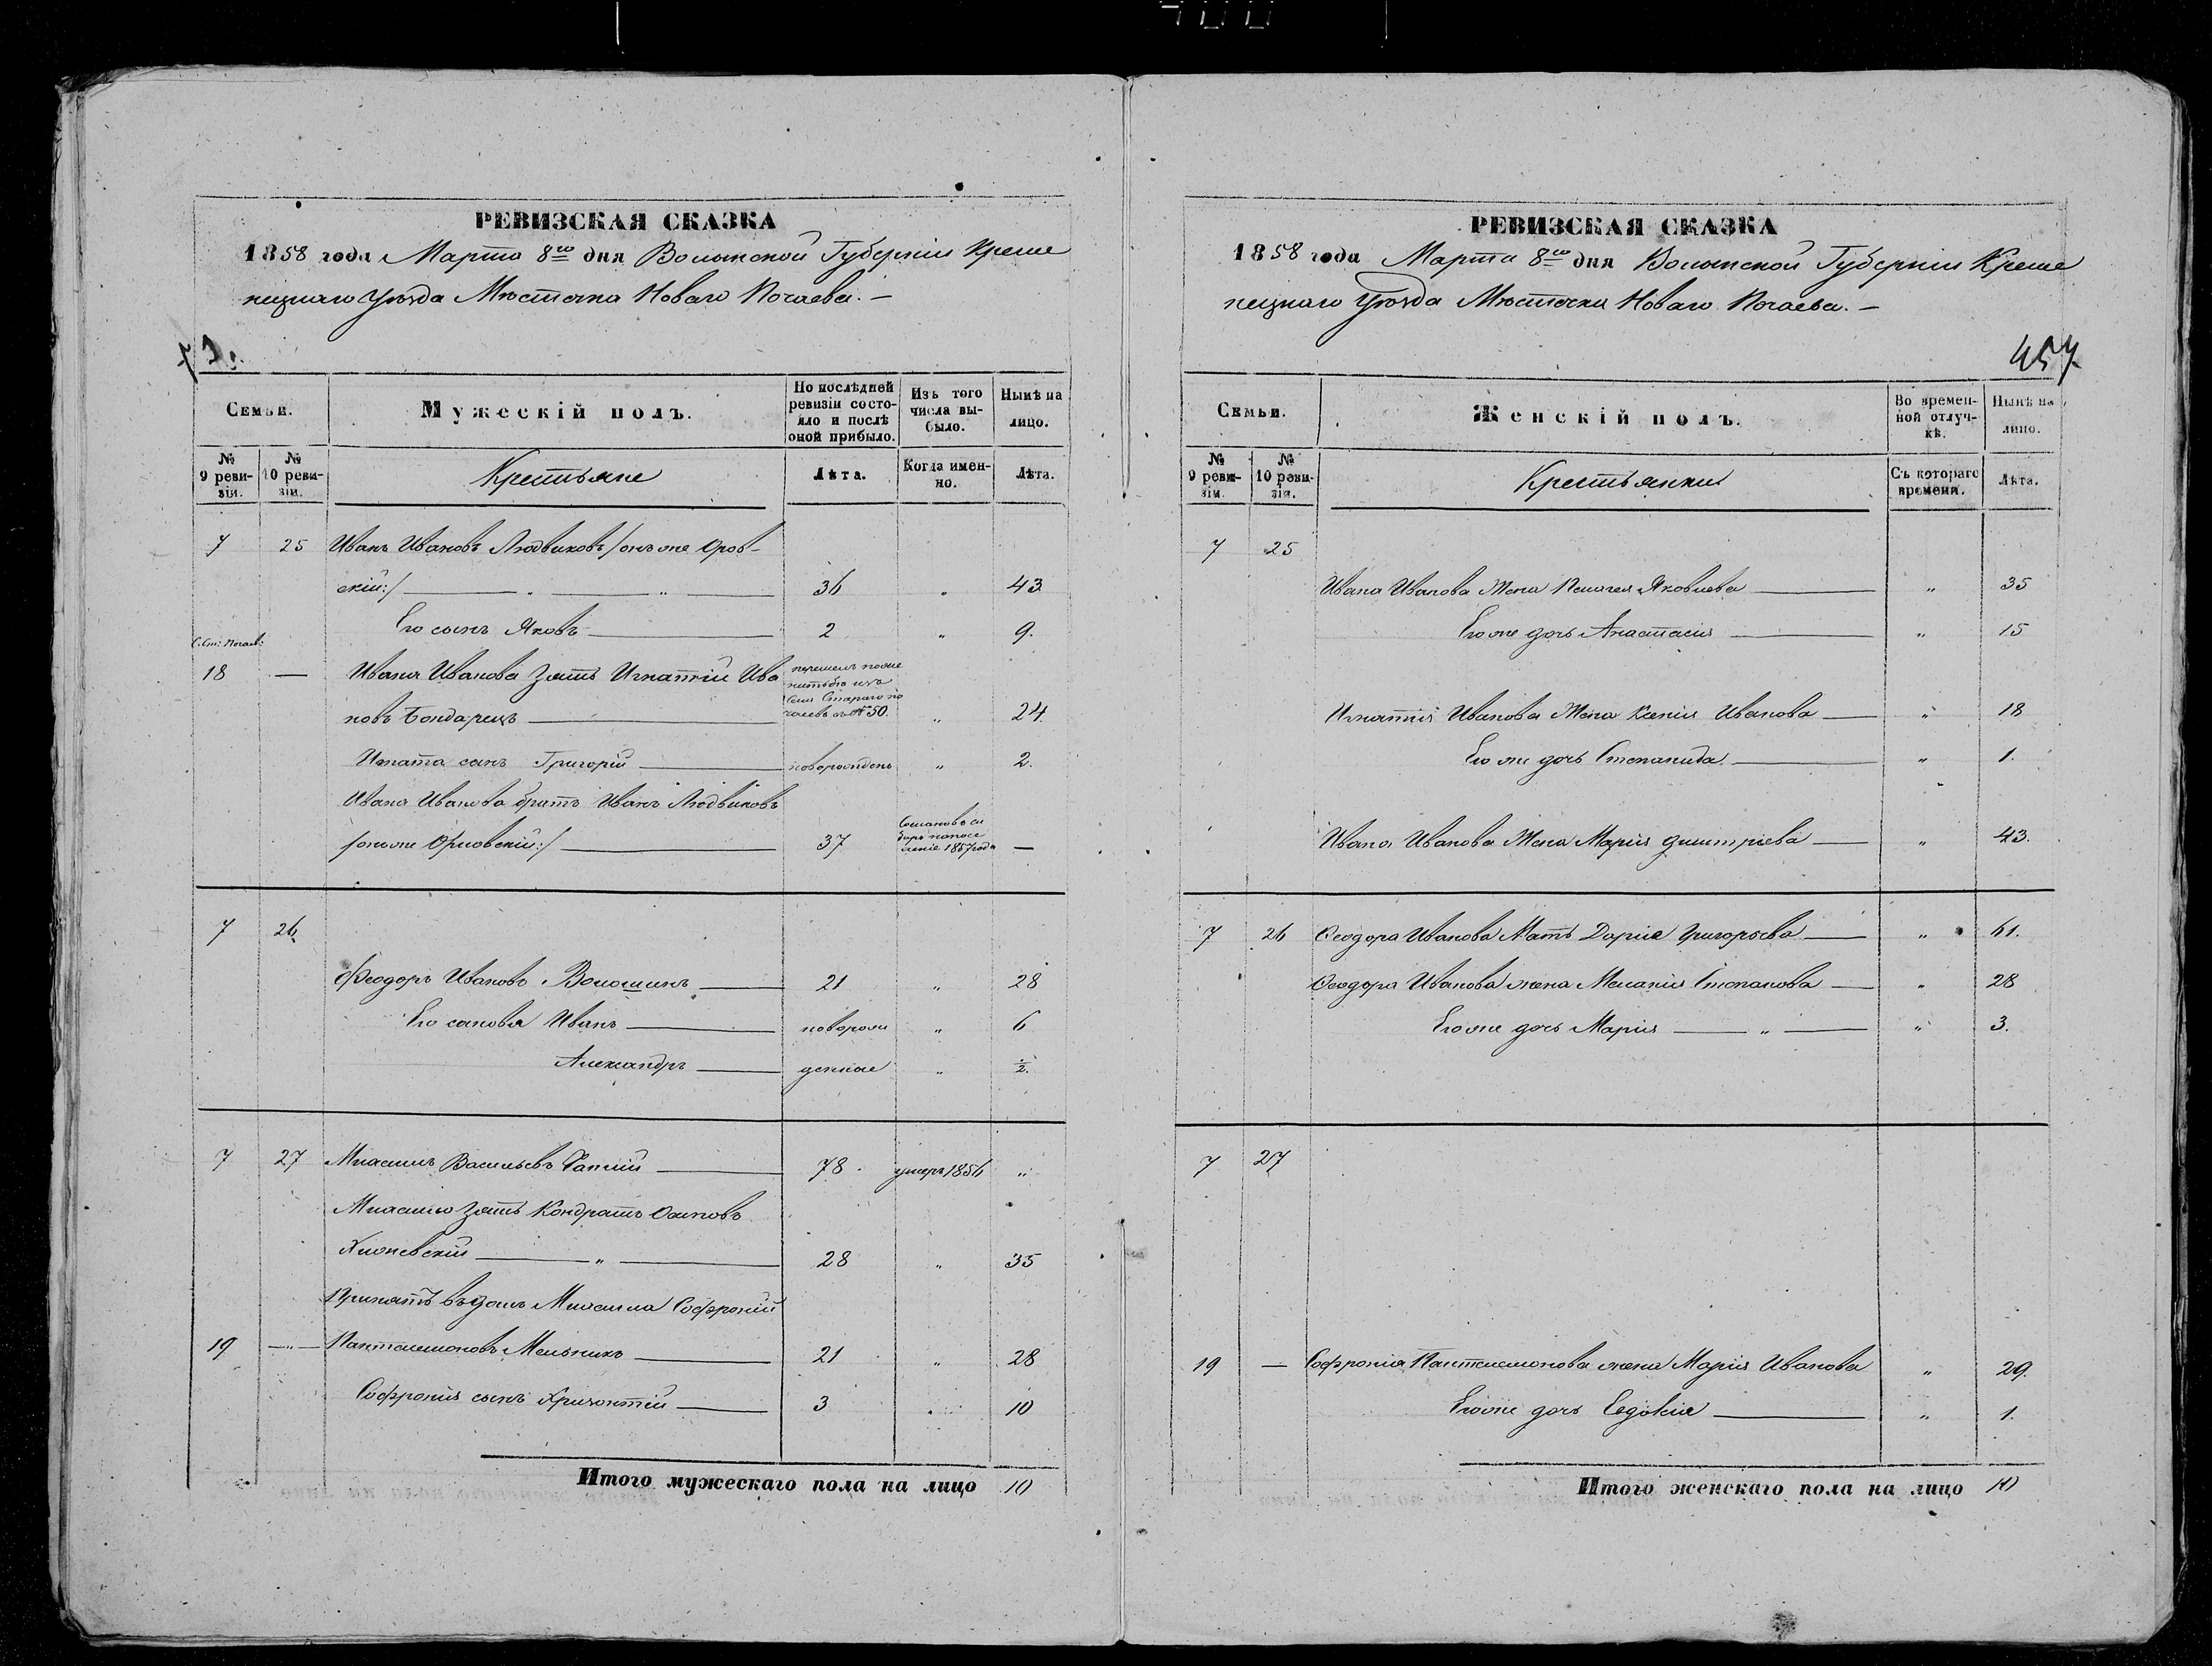 РЕВИЗСКАЯ СКАЗКА
1858 года Марта 8го дня Волынской Губерніи Креме
нецкаго Уѣзда Мѣстечка Новаго Почаева. —
Семьи.
Мужескій полъ.
По послѣдней ревизіи состояло и послѣ оной прибыло.
Изъ того числа выбыло.
Нынѣ на лицо.
№ 9 ревизіи.
№ 10 ревизіи.
Крестьяне
Лѣта.
Когда именно.
Лѣта.
7 25 Иванъ Ивановъ Людвиковъ /:онъ же Орлов-
скій:/ — „ — „ — 36 „ 43.
Его сынъ Яковъ — 2 „ 9.
С. Ст: Почаев:
18 — Ивана Иванова Зять Игнатій Ива
новъ Бондарецъ — „ 24.
перешелъ
изъ
Села Стараго По
чаева съ № 50.
Игната сынъ Григорій — новорожденъ „ 2.
Ивана Иванова братъ Иванъ Людвиковъ
/:онъ же Орловскій:/ — 37 —
1857 года
7 26
Феодоръ Ивановъ Волошинъ — 21 „ 28
Его сыновья Иванъ — новорож „ 6
Александръ — денные „ ½.
7 27 Михаилъ Васильевъ — 78. умеръ 1856 „
Михаила Зять Кондратъ Осиповъ
— „ — 28 „ 35
Принятъ въ домъ Михаила Софроній
19 — „ — Пантелемоновъ Мельникъ — 21 „ 28
Софронія сынъ — 3 „ 10
Итого мужескаго пола на лицо 10
РЕВИЗСКАЯ СКАЗКА
1858 года Марта 8го дня Волынской Губерніи Креме
нецкаго Уѣзда Мѣстечка Новаго Почаева. —
457
Семьи.
Женскій полъ.
Во временной отлучкѣ.
Нынѣ на лицо.
№ 9 ревизіи.
№ 10 ревизіи.
Крестьянки
Съ котораго времени.
Лѣта.
7 25
Ивана Иванова Жена Пелагея Яковлева — „ 35
Его же дочь Анастасія — „ 15
Игнатія Иванова Жена Ксенія Иванова — „ 18
Его же дочь Степанида — „ 1.
Ивана Иванова Жена Марія Димитріева — „ 43.
7 26 Феодора Иванова Мать Дарія Григорьева — „ 61.
Феодора Иванова жена Меланія Степанова — „ 28
Его же дочь Марія — „ — „ 3.
7 27
19 — Софронія Пантелемонова жена Марія Иванова „ 29.
Его же дочь Евдокія — „ 1.
Итого женскаго пола на лицо 10